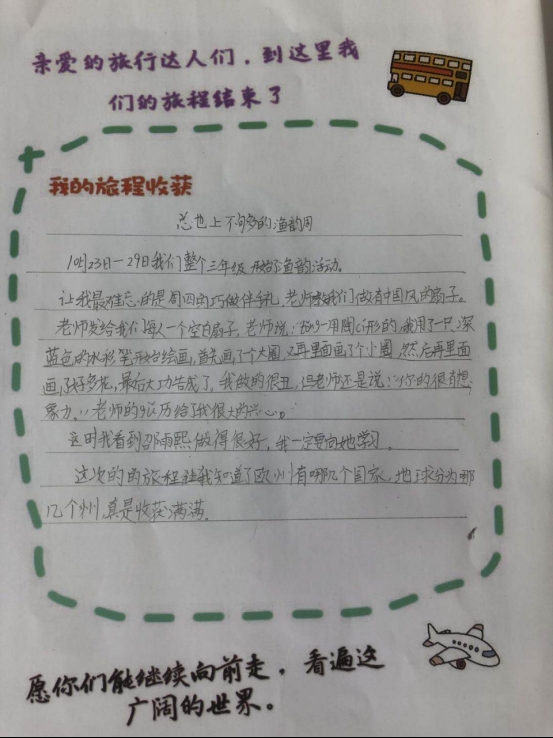 亲爱的旅行达人们，到这里我
们的旅程结束了
我的旅程收获
总也上不够多的渔韵周
10月23日一29日我们整个三年级开始了渔韵活动。
让我最难忘的是周四的巧做伴手礼，老师教我们做有中国风的扇子。
老师发给我们每人一个空白扇子，老师说：我用了一只深
蓝色的水彩笔开始绘画，首先画了个大圈又再里面画了个小圈，然后再里面
画了好多花，最后大功告成了，我做的很丑，但老师还是说：“你的很有想
象力。”老师的给了我很大的兴心。
这时我看到邵雨熙做得很好，我一定要向她学习。
这次的的旅程让我知道了欧州有哪几个国家，地球分为哪
几个州，真是收获满满。
愿你们能继续向前走，看遍这
广阔的世界。